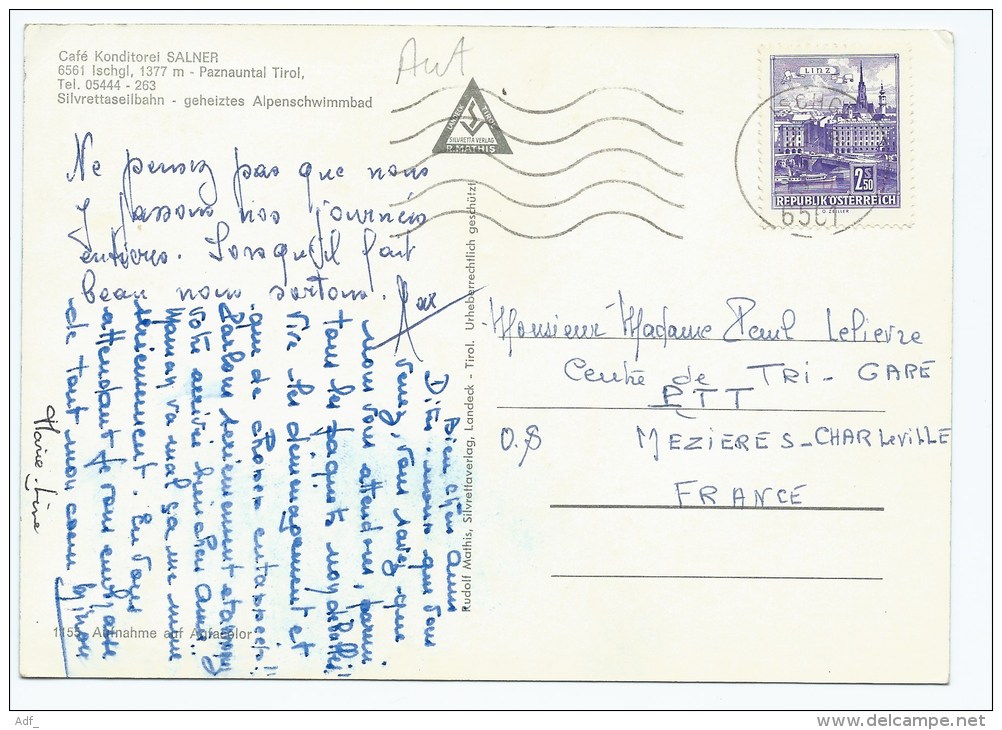 Café Konditorei SALNER
6561 Ischgl, 1377 m - Paznauntal Tirol,
Tel. 05444 - 263
Silvrettaseilbahn - geheiztes Alpenschwimmbad
Aut
SILVRETTA VERLAG
R. MATHIS
LINZ
2 S 50
REPUBLIK ÖSTERREICH
6561
Ne pensez pas que nous
y passons nos journées
entières. Lorsqu'il fait
beau nous sortons.
Bien chers amis
Dites-nous que vous
venez, vous savez que
nous vous attendons, parmi
tous les paquets
Vive les déménagements et
que de choses entassées !!
Parlons sérieusement
votre arrivée
Maman va mal ça me mine
sérieusement. En vous
attendant je vous embrasse
de tout mon coeur
Marie-Line
Monsieur Madame Paul Lelievre
Centre de TRI - GARE
PTT
MEZIERES - CHARLEVILLE
FRANCE
Rudolf Mathis, Silvrettaverlag, Landeck - Tirol. Urheberrechtlich geschützt
1155 Aufnahme auf Agfacolor
Adf_
www.delcampe.net